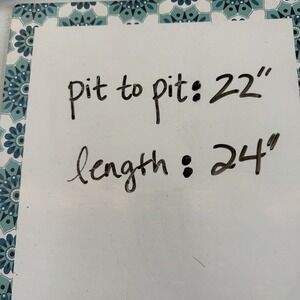 pit to pit: 22"
length: 24"